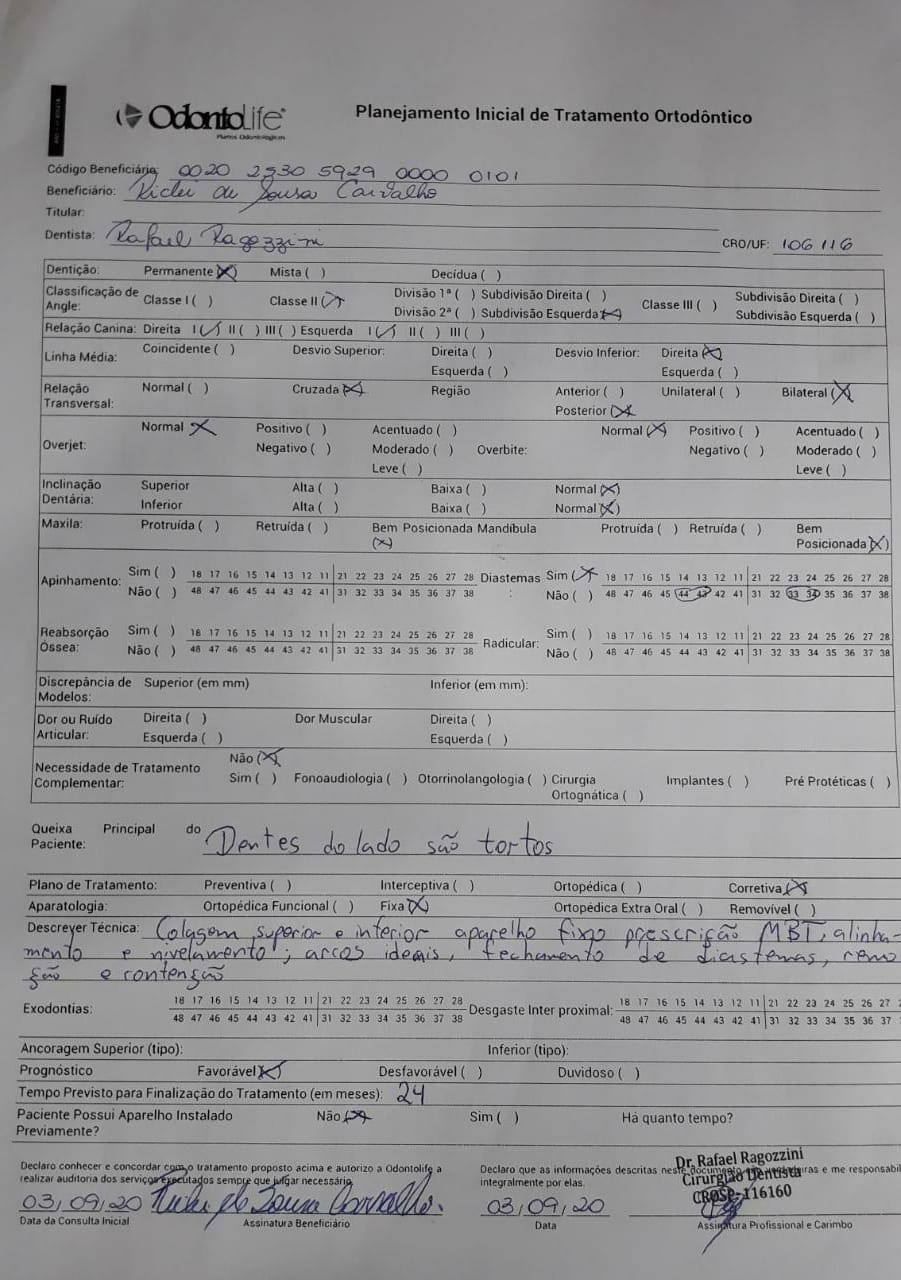 OdontoLife
Planos Odontológicos
Planejamento Inicial de Tratamento Ortodôntico
Código Beneficiário: 0020 2530 5929 0000 0101
Beneficiário: de Sousa Carvalho
Titular:
Dentista: Rafael Ragozzini CRO/UF: 106116
Dentição: Permanente (X) Mista ( ) Decídua ( )
Classificação de Angle: Classe I ( ) Classe II (X) Divisão 1ª ( ) Subdivisão Direita ( ) Divisão 2ª ( ) Subdivisão Esquerda (X) Classe III ( ) Subdivisão Direita ( ) Subdivisão Esquerda ( )
Relação Canina: Direita I (X) II ( ) III ( ) Esquerda I (X) II ( ) III ( )
Linha Média: Coincidente ( ) Desvio Superior: Direita ( ) Esquerda ( ) Desvio Inferior: Direita (X) Esquerda ( )
Relação Transversal: Normal ( ) Cruzada (X) Região Anterior ( ) Posterior (X) Unilateral ( ) Bilateral (X)
Overjet: Normal X Positivo ( ) Negativo ( ) Acentuado ( ) Moderado ( ) Leve ( ) Overbite: Normal (X) Positivo ( ) Negativo ( ) Acentuado ( ) Moderado ( ) Leve ( )
Inclinação Dentária: Superior Alta ( ) Baixa ( ) Normal (X)
Inferior Alta ( ) Baixa ( ) Normal (X)
Maxila: Protruída ( ) Retruída ( ) Bem Posicionada (X) Mandíbula Protruída ( ) Retruída ( ) Bem Posicionada (X)
Apinhamento: Sim ( ) 18 17 16 15 14 13 12 11 21 22 23 24 25 26 27 28 Diastemas: Sim (X) 18 17 16 15 14 13 12 11 21 22 23 24 25 26 27 28
Não ( ) 48 47 46 45 44 43 42 41 31 32 33 34 35 36 37 38 Não ( ) 48 47 46 45 44 43 42 41 31 32 33 34 35 36 37 38
Reabsorção Óssea: Sim ( ) 18 17 16 15 14 13 12 11 21 22 23 24 25 26 27 28 Radicular: Sim ( ) 18 17 16 15 14 13 12 11 21 22 23 24 25 26 27 28
Não ( ) 48 47 46 45 44 43 42 41 31 32 33 34 35 36 37 38 Não ( ) 48 47 46 45 44 43 42 41 31 32 33 34 35 36 37 38
Discrepância de Modelos: Superior (em mm) Inferior (em mm):
Dor ou Ruído Articular: Direita ( ) Esquerda ( ) Dor Muscular Direita ( ) Esquerda ( )
Necessidade de Tratamento Complementar: Não (X) Sim ( ) Fonoaudiologia ( ) Otorrinolangologia ( ) Cirurgia Ortognática ( ) Implantes ( ) Pré Protéticas ( )
Queixa Principal do Paciente: Dentes do lado são tortos
Plano de Tratamento: Preventiva ( ) Interceptiva ( ) Ortopédica ( ) Corretiva (X)
Aparatologia: Ortopédica Funcional ( ) Fixa (X) Ortopédica Extra Oral ( ) Removível ( )
Descrever Técnica: Colagem superior e inferior aparelho fixo prescrição MBT, alinha-
mento e nivelamento; arcos ideais, fechamento de diastemas, remo
ção e contenção
Exodontias: 18 17 16 15 14 13 12 11 21 22 23 24 25 26 27 28 Desgaste Inter proximal: 18 17 16 15 14 13 12 11 21 22 23 24 25 26 27
48 47 46 45 44 43 42 41 31 32 33 34 35 36 37 38 48 47 46 45 44 43 42 41 31 32 33 34 35 36 37
Ancoragem Superior (tipo): Inferior (tipo):
Prognóstico Favorável (X) Desfavorável ( ) Duvidoso ( )
Tempo Previsto para Finalização do Tratamento (em meses): 24
Paciente Possui Aparelho Instalado Previamente? Não (X) Sim ( ) Há quanto tempo?
Declaro conhecer e concordar com o tratamento proposto acima e autorizo a Odontolife a
realizar auditoria dos serviços executados sempre que julgar necessário.
Declaro que as informações descritas neste documento são verdadeiras e me responsabil
integralmente por elas.
Dr. Rafael Ragozzini
Cirurgião Dentista
CROSP-116160
03/09/20 de Sousa Carvalho. 03/09/20
Data da Consulta Inicial Assinatura Beneficiário Data Assinatura Profissional e Carimbo